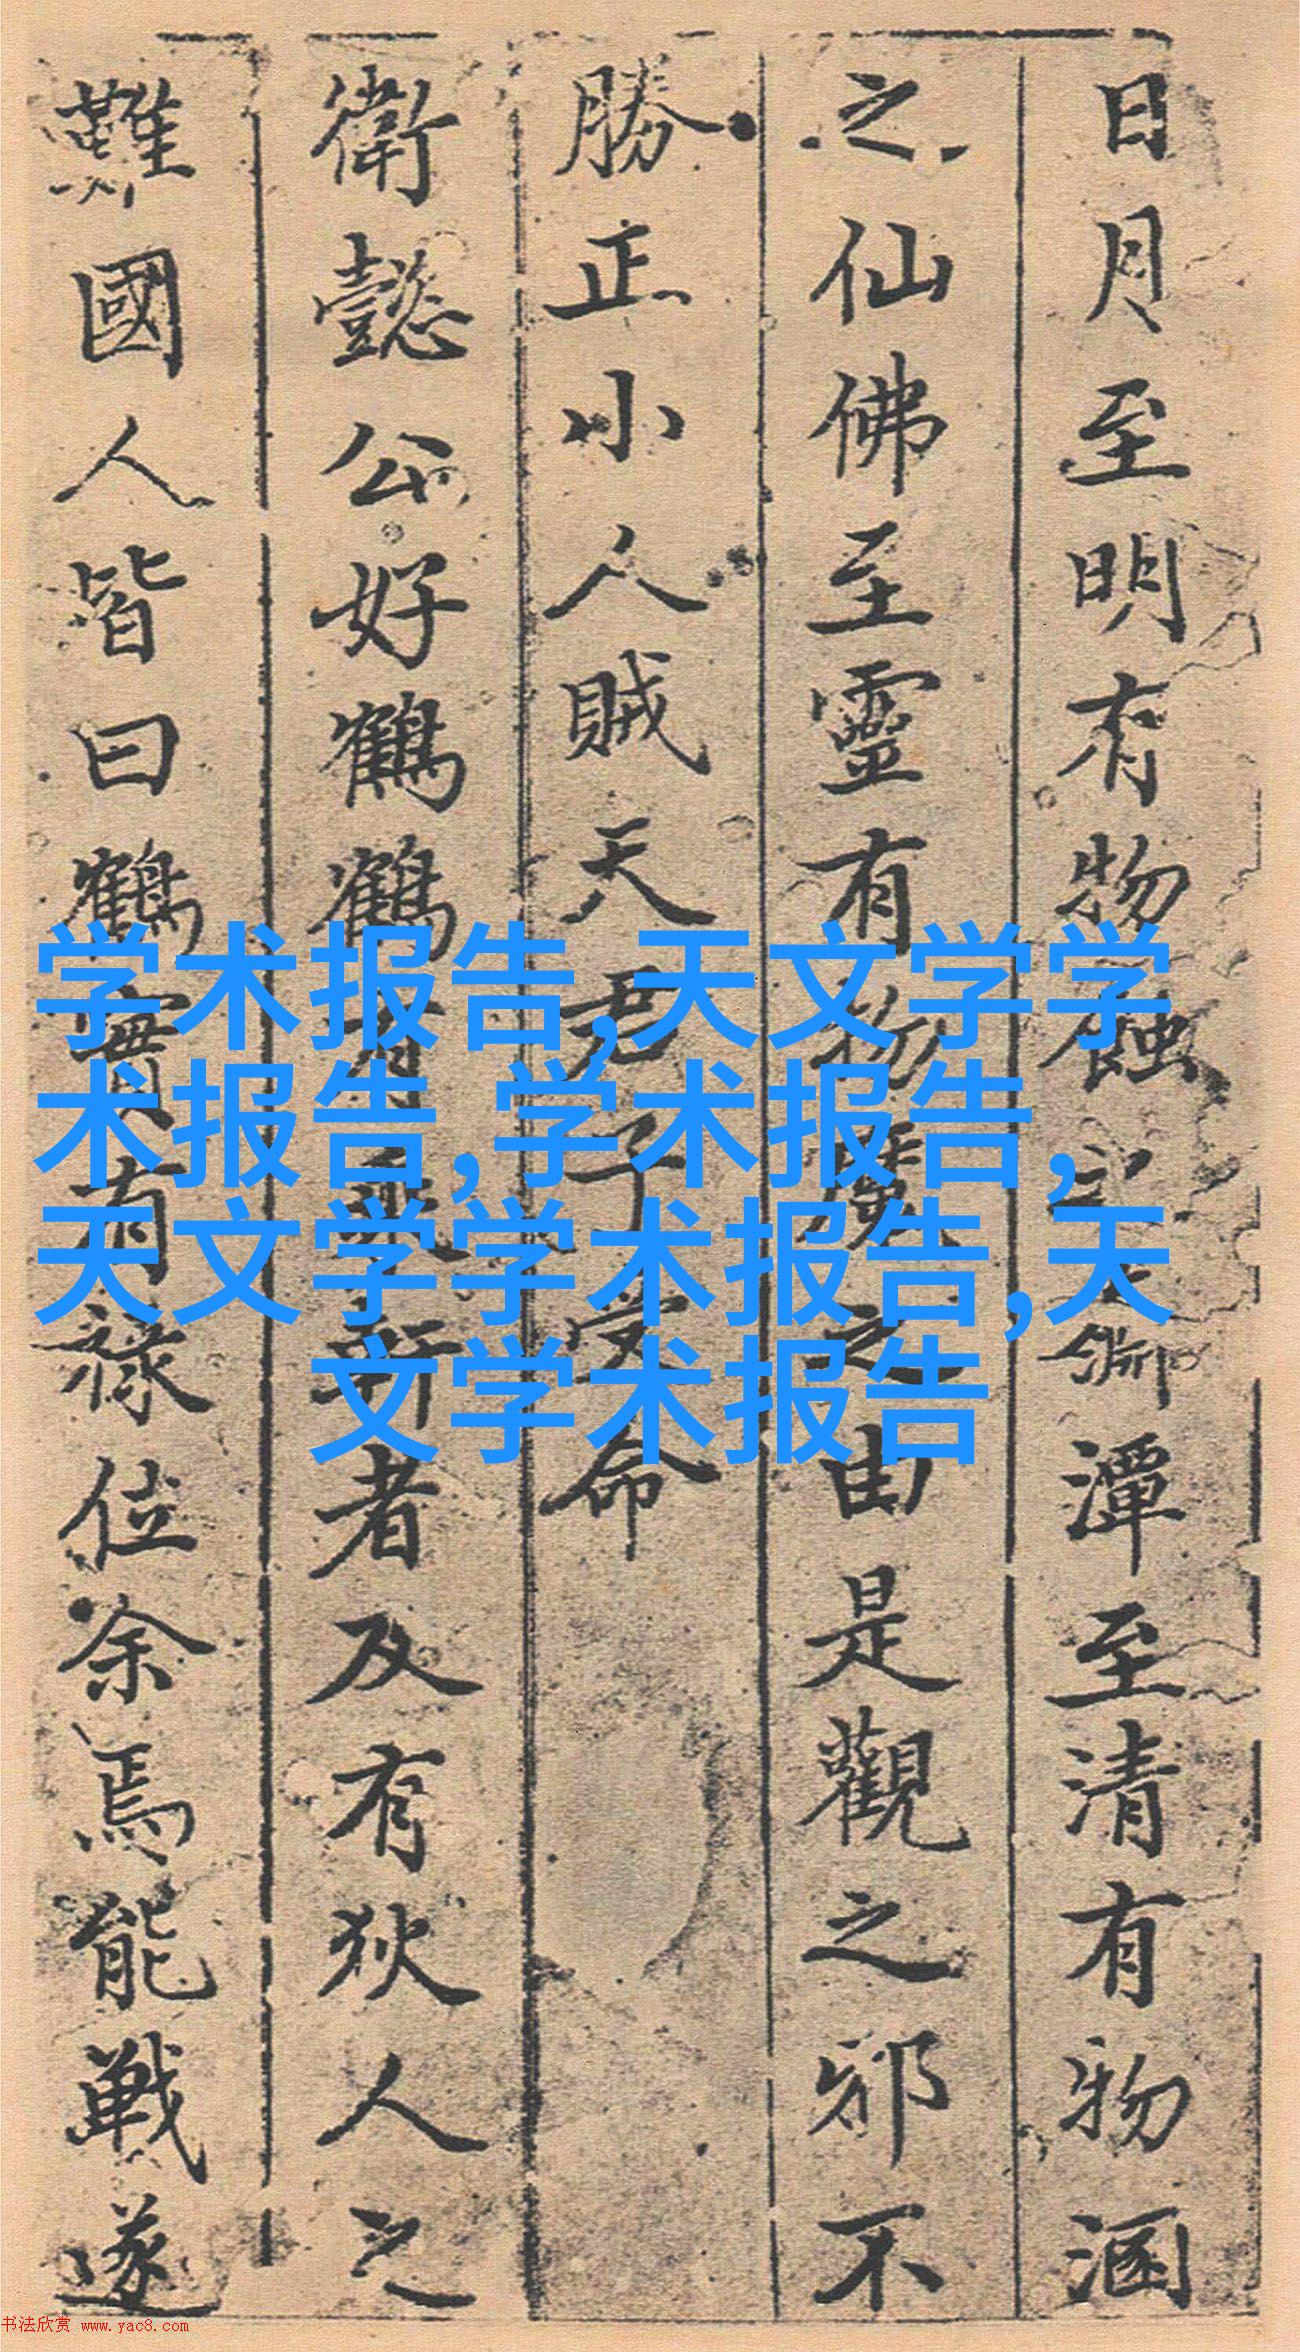 日月至明有物蝕之淵潭至清有物涵
之仙佛至靈有物魔之由是觀之邪不
勝正小人賊天君子受命
衛懿公好鶴鶴有乘軒者及有狄人之
難國人皆曰鶴實有祿位余焉能戰遂
学术报告,天文学学
术报告,学术报告,
天文学学术报告,天
文学术报告
书法欣赏 www.yac8.com